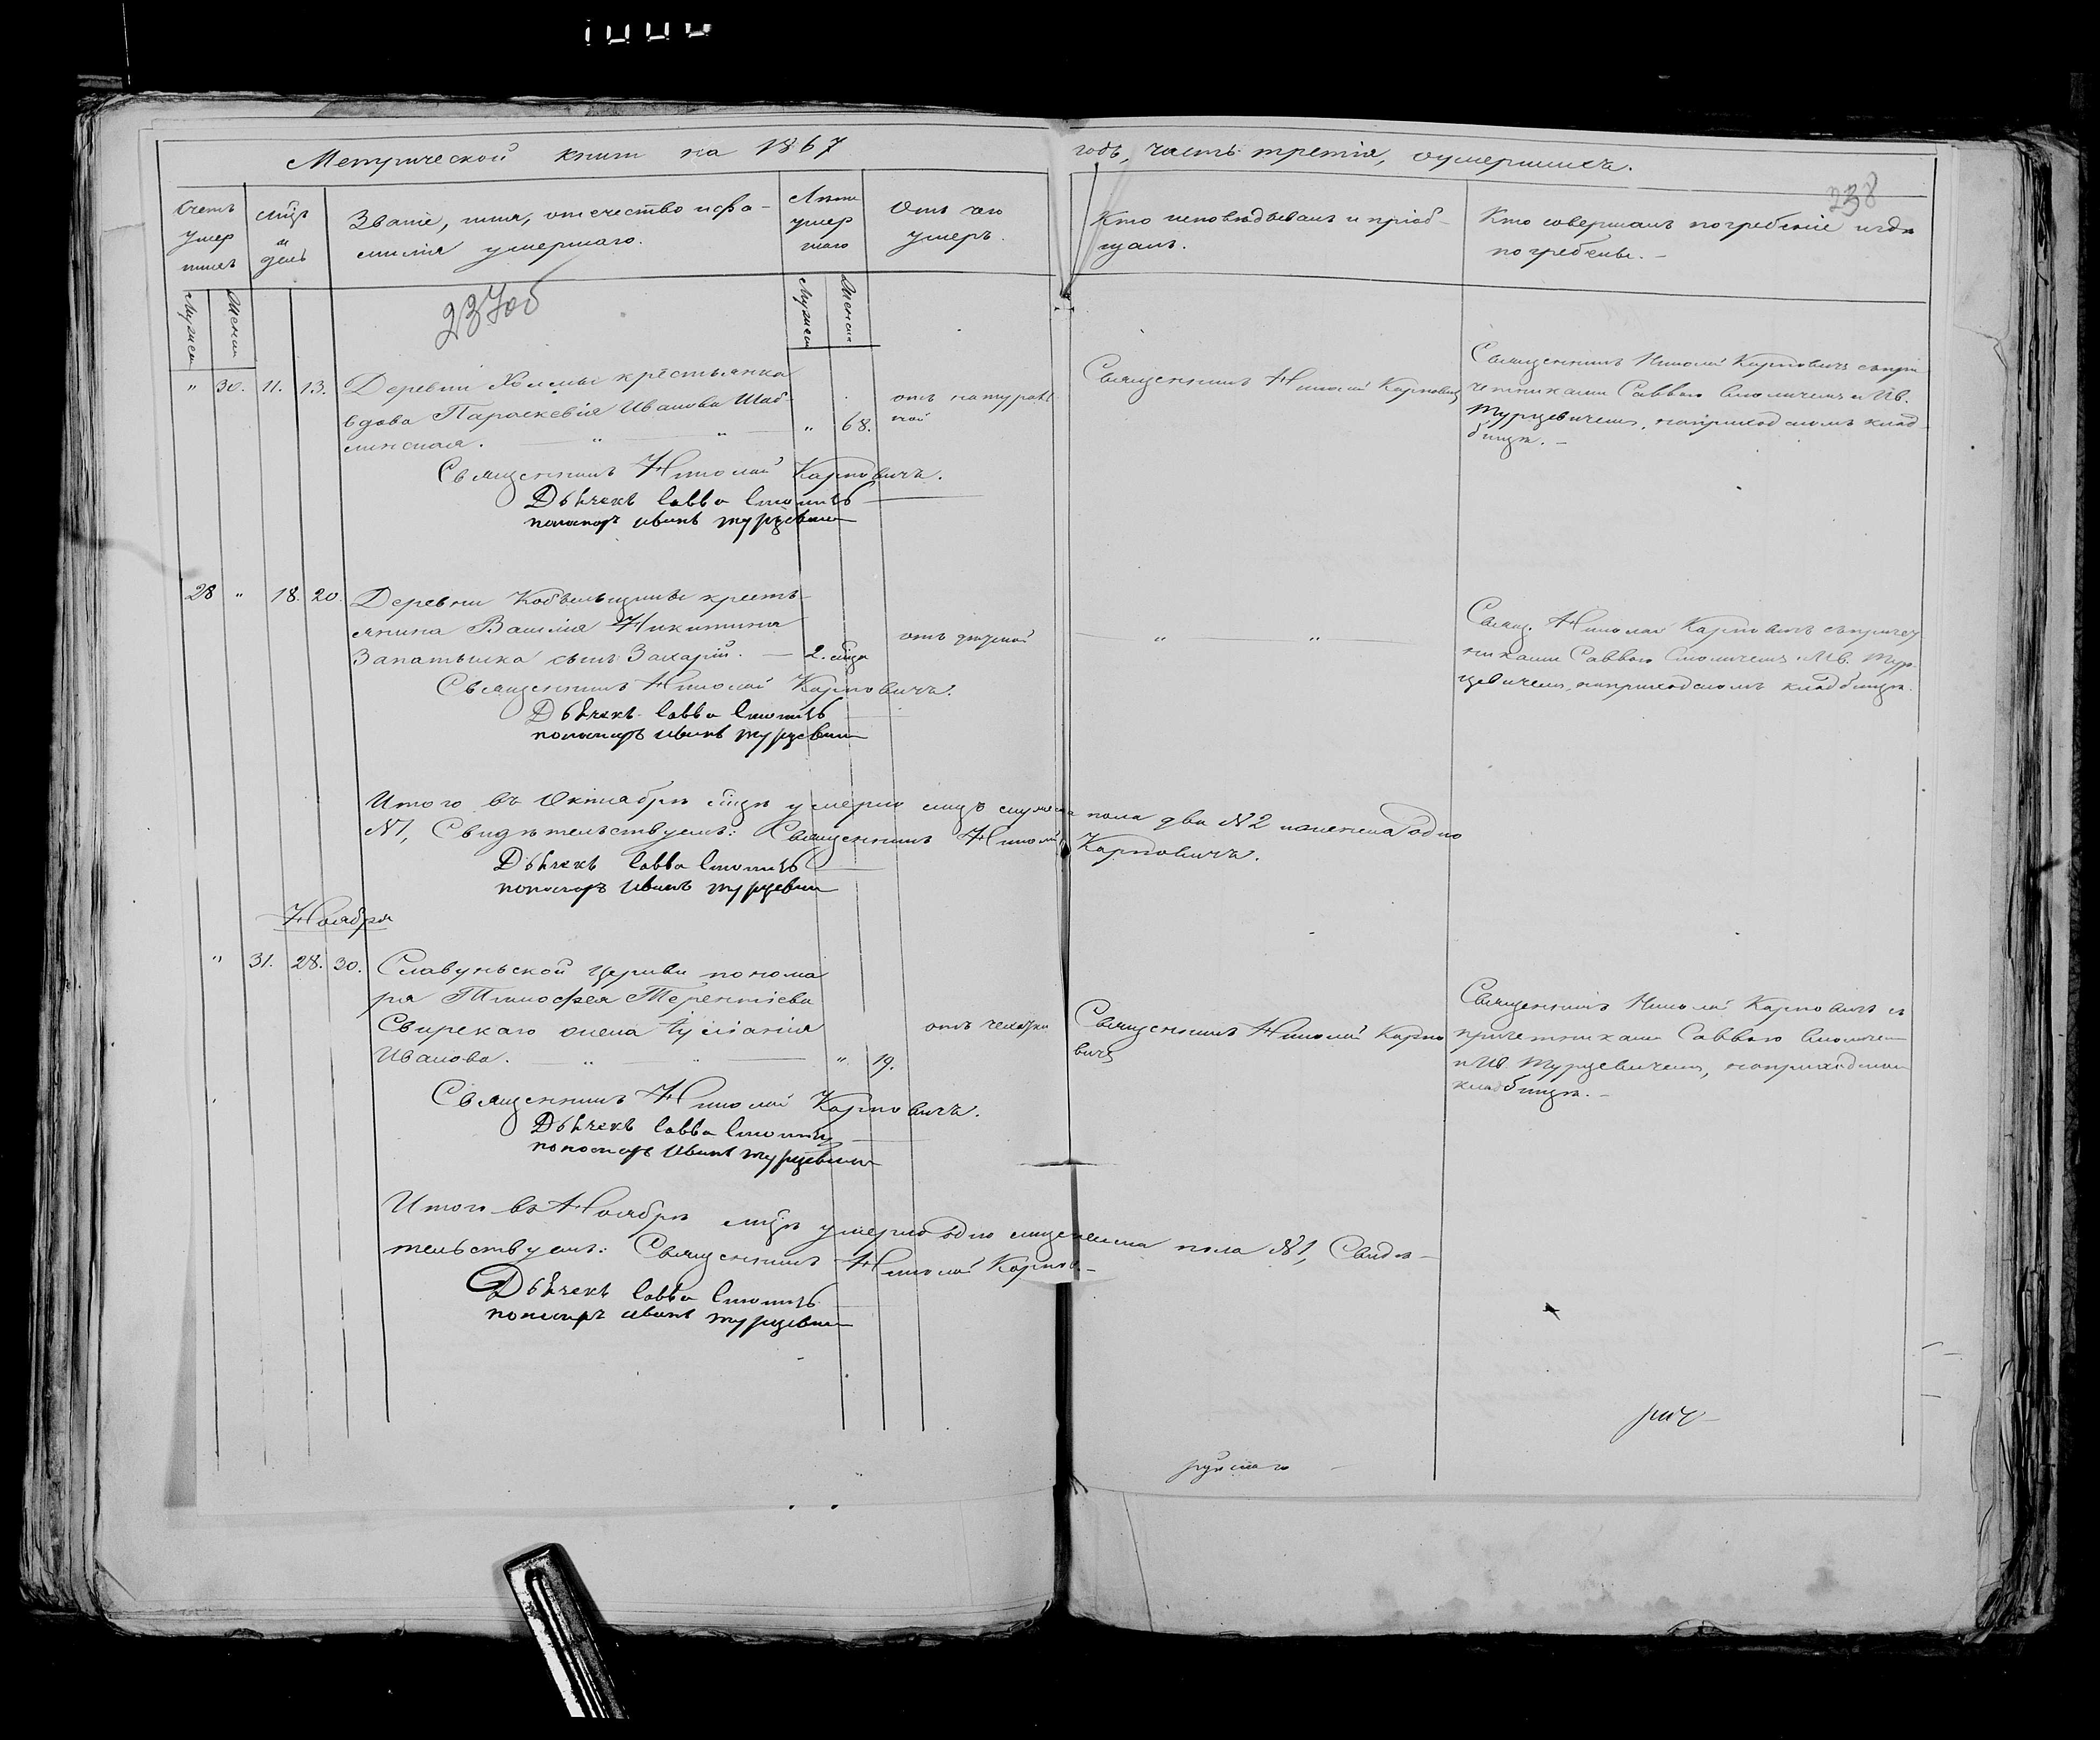 Метрической книги на 1867
годъ, часть третія, оумершихъ.
238
Счетъ умер шихъ
Мцъ и день
Званіе, имя, отчество и фа-
милія умершаго.
Лѣта умер шаго
Отъ чего
умеръ.
Кто исповѣдывалъ и пріоб-
щалъ.
Кто совершалъ погребеніе и гдѣ
погребены.
Мужеск
Женск
237об
Мужеск
Женск
" 30. 11. 13. Деревни Холмы крестьянка
вдова Параскевія Иванова Шаб-
линская. " " " 68.
отъ натураль
ной
Священникъ Николай Карповичъ
Священникъ Николай Карповичъ съ при
четниками Саввою Смоличемъ и Ив.
Турцевичемъ, на приходскомъ клад
бищѣ.
Священникъ Николай Карповичъ.
Дьячекъ Савва Смоличъ
пономарь Иванъ Турцевичъ
28 " 18. 20. Деревни Кобыльщины кресть-
янина Василія Никитина
Запатылка сынъ Захарій. 2. мцa
отъ
" "
Свящ. Николай Карповичъ съ причет
никами Саввою Смоличемъ и Ив. Тур-
цевичемъ, на приходскомъ кладбищѣ.
Священникъ Николай Карповичъ.
Дьячекъ Савва Смоличъ
пономарь Иванъ Турцевичъ
Итого въ Октябрѣ мцѣ умерло лицъ мужеска пола два №2 и женска одно
№1, Свидѣтельствуемъ: Священникъ Николай Карповичъ.
Дьячекъ Савва Смоличъ
пономарь Иванъ Турцевичъ
Ноябрь
" 31. 28. 30. Славуньской Церкви понома
ря Тимофея Терентіева
Свирскаго жена Іуліанія
Иванова. " " " 19.
отъ чахотки
Священникъ Николай Карпо
вичъ
Священникъ Николай Карповичъ съ
причетниками Саввою Смоличемъ
и Ив. Турцевичемъ, на приходскомъ
кладбищѣ.
Священникъ Николай Карповичъ.
Дьячекъ Савва Смоличъ
пономарь Иванъ Турцевичъ
Итого въ Ноябрѣ мцѣ умерло одно лице женска пола №1, Свидѣ-
тельствуемъ: Священникъ Николай Карпов.
Дьячекъ Савва Смоличъ
пономарь Иванъ Турцевичъ